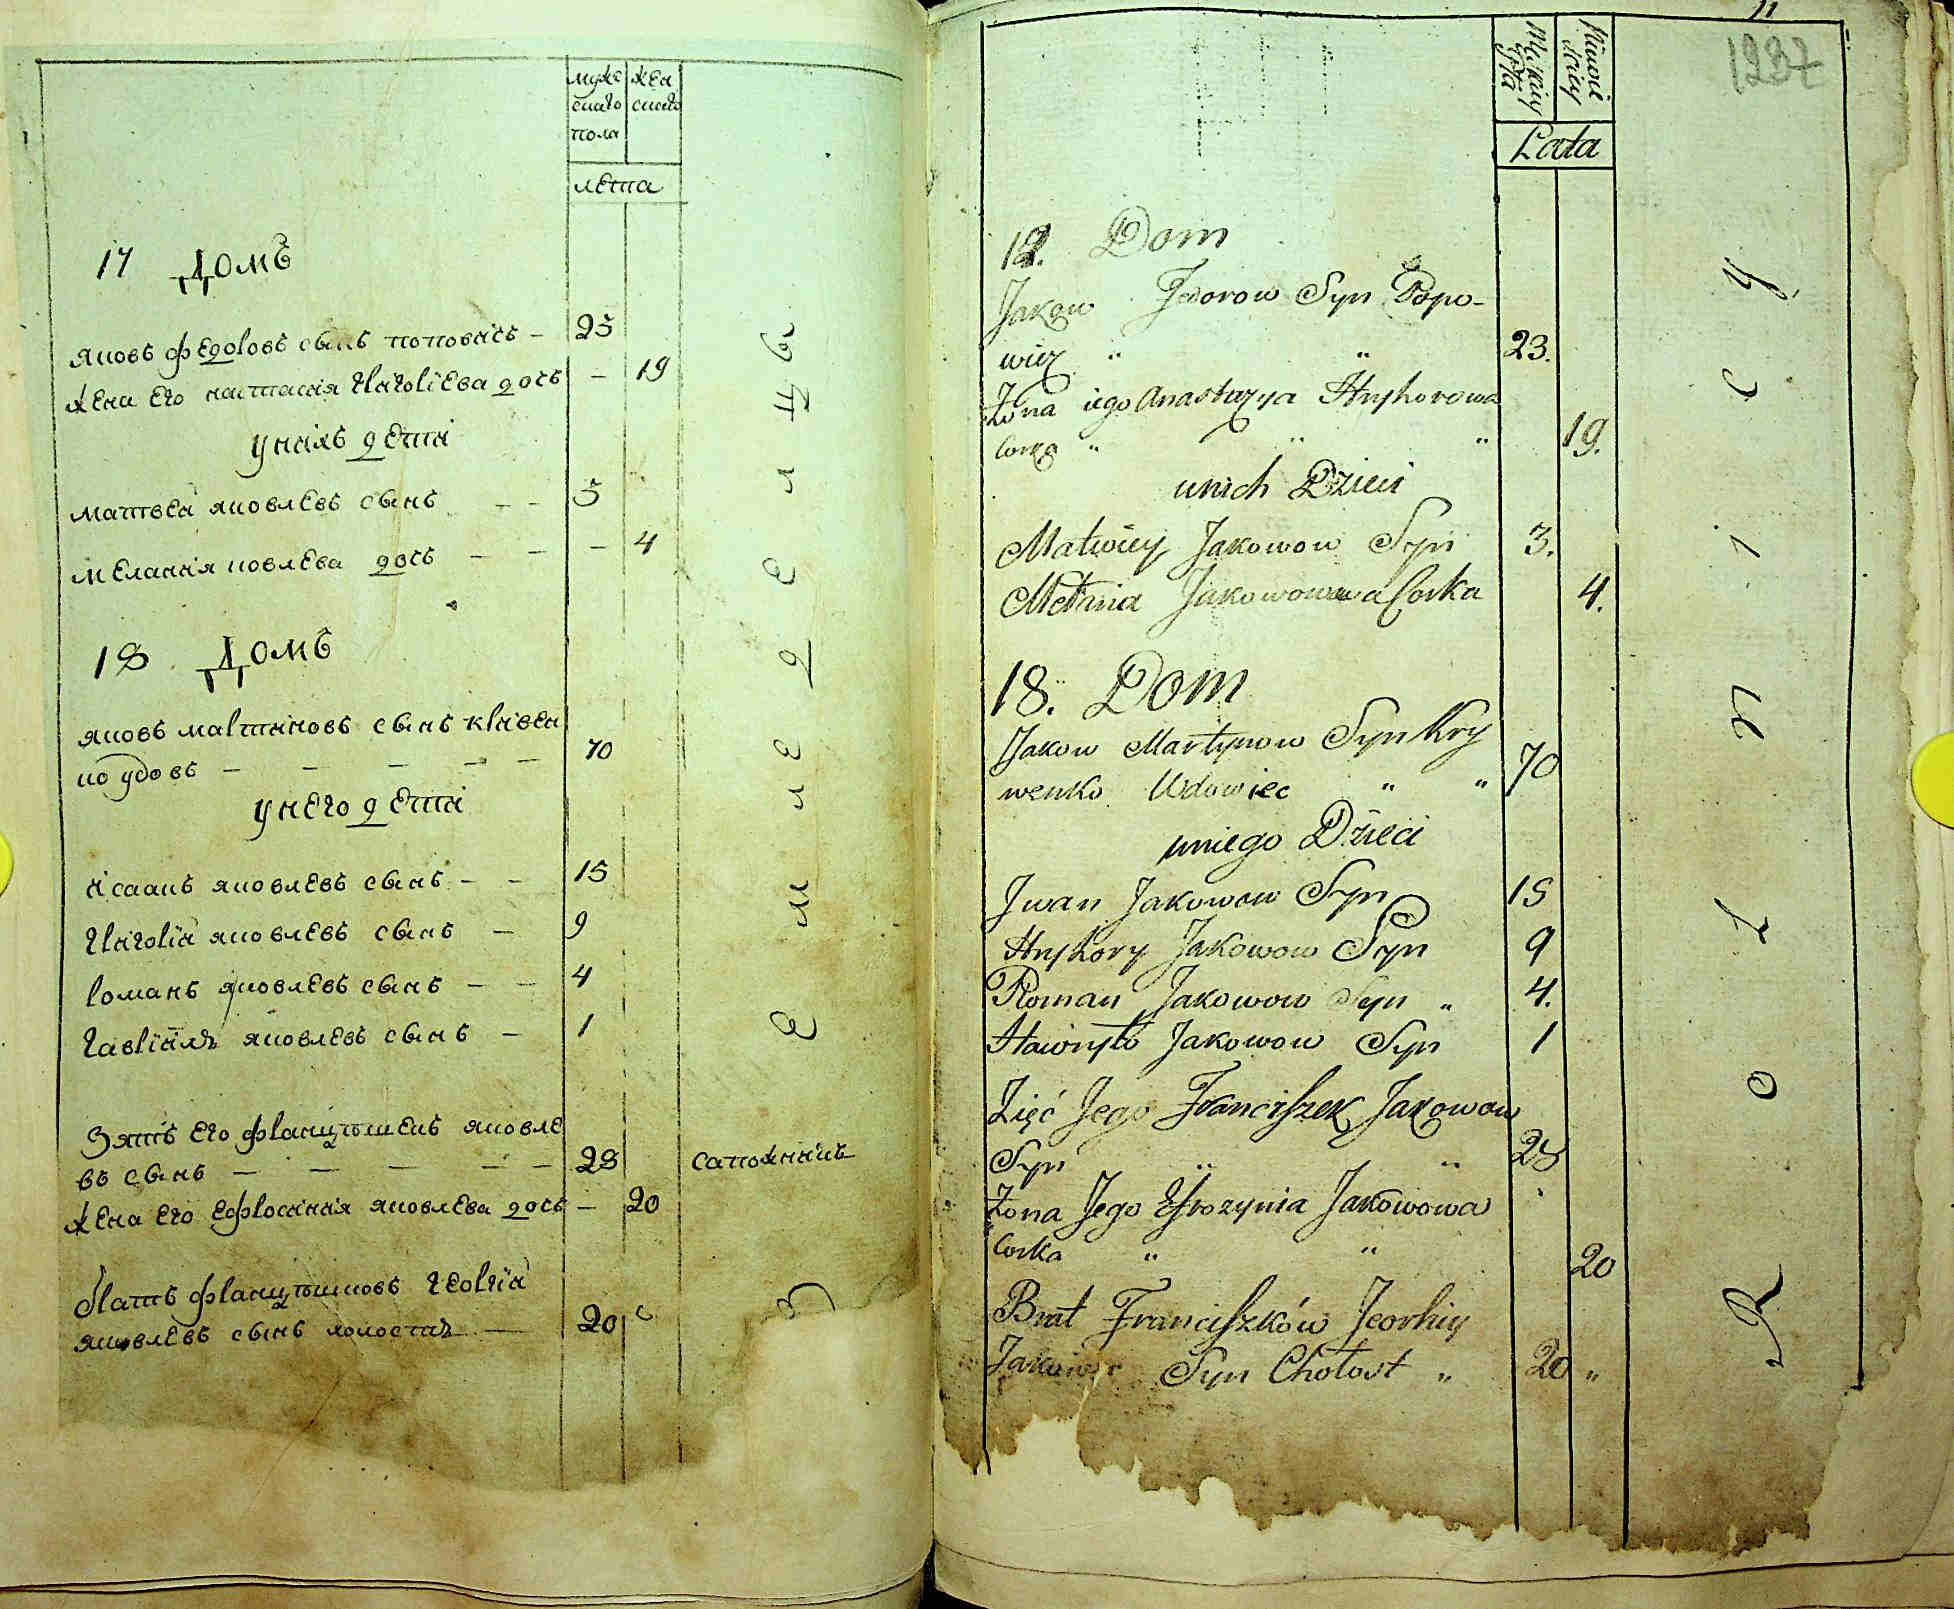 муже
скаго
пола
жен
скаго
лета
17 Домъ
яковъ федоровъ сынъ поповичъ — 25
жена его настасия григориева дочь — 19
у нихъ дети
матвей яковлевъ сынъ — — 3
мелания яковлева дочь — — — 4
18 Домъ
яковъ мартиновъ сынъ кривен
ко удовъ — — — — — 70
у него дети
исаакъ яковлевъ сынъ — — 15
григорий яковлевъ сынъ — 9
романъ яковлевъ сынъ — — 4
гаврiилъ яковлевъ сынъ — 1
зять его францышекъ яковле
въ сынъ — — — — — 28 сапожникъ
жена его ефросиния яковлева дочь — 20
братъ францышковъ георгий
яковлевъ сынъ холостъ — 20
земледелцы
11
1237
Męskiey
Płci
Lata
12. Dom
Jakow Fedorow Syn Popo-
wicz " " 23.
Żona iego Anastazya Hryhorowa
Corka " " " 19.
unich Dzieci
Matwiey Jakowow Syn 3.
Mełania Jakowowa Corka 4.
18. Dom
Jakow Martynow Syn Kry
wenko Wdowiec " " 70
uniego Dzieci
Jwan Jakowow Syn 15
Hryhory Jakowow Syn 9
Roman Jakowow Syn " 4.
Hawryło Jakowow Syn 1
Zięć Jego Franciszek Jakowow
Syn " " 28
Żona Jego Efrozynia Jakowowa
Corka " " 20
Brat Franciszków Jeorhiy
Jakowow Syn Chołost " 20 "
Rolnicy